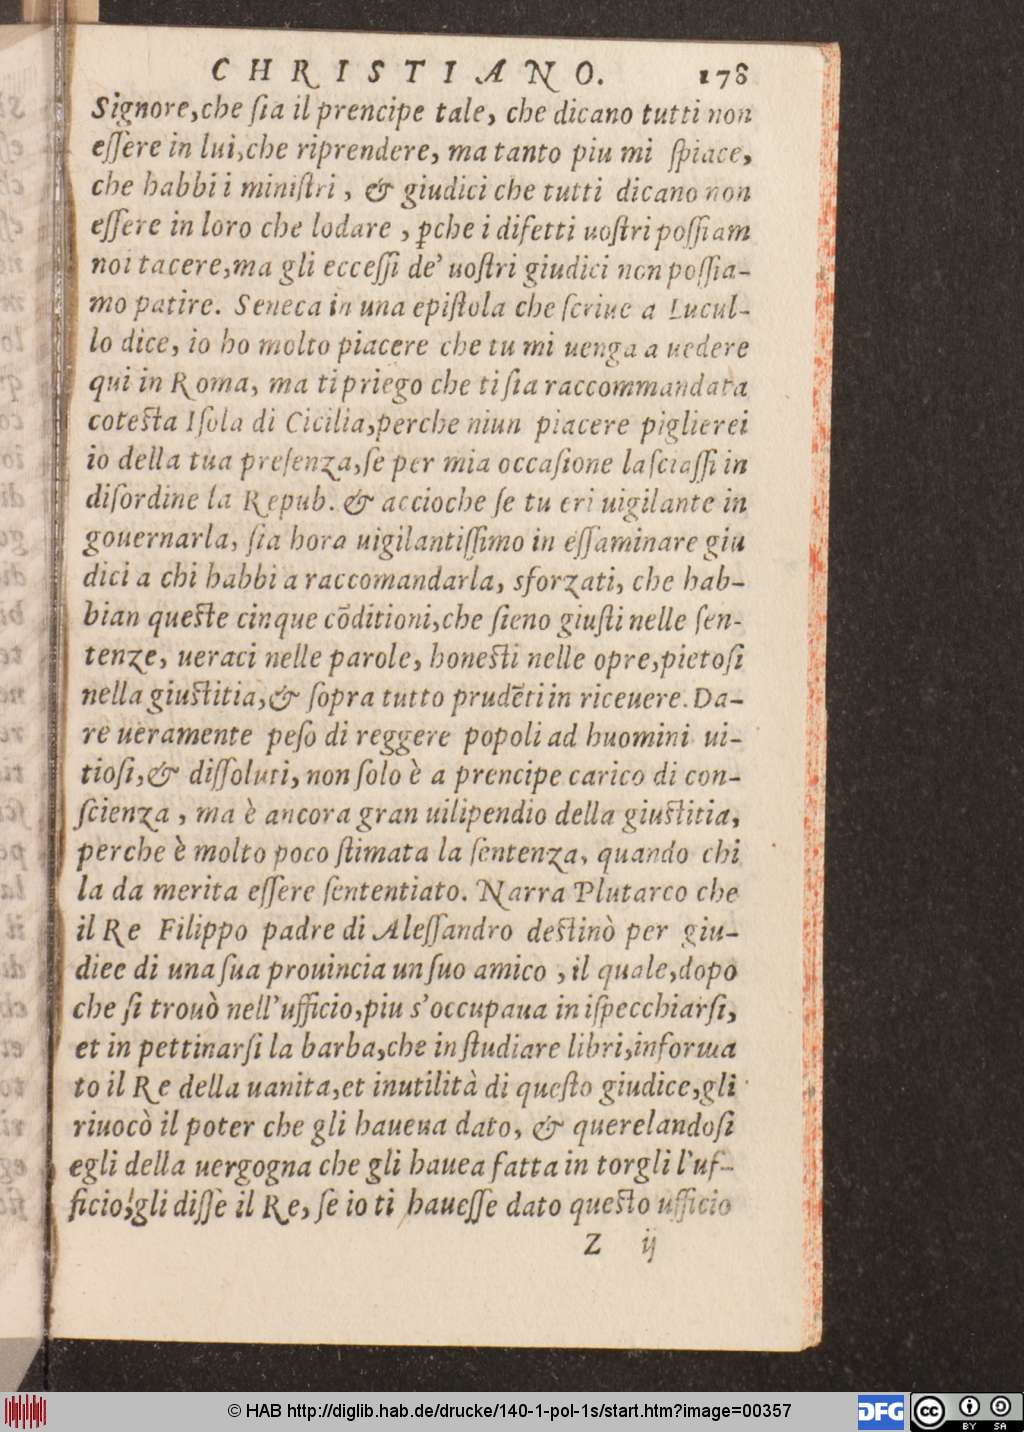 CHRISTIANO. 178
Signore,che ſia il prencipe tale, che dicano tutti non
eſſere in lui,che riprendere, ma tanto piu mi ſpiace,
che habbi i miniſtri, & giudici che tutti dicano non
eſſere in loro che lodare, ꝑche i difetti uoſtri poſſiam
noi tacere,ma gli ecceſſi de' uoſtri giudici non poſſia-
mo patire. Seneca in una epiſtola che ſcriue a Lucul-
lo dice, io ho molto piacere che tu mi uenga a uedere
qui in Roma, ma ti priego che ti ſia raccommandata
coteſta Iſola di Cicilia,perche niun piacere piglierei
io della tua preſenza,ſe per mia occaſione laſciaſſi in
diſordine la Repub. & accioche ſe tu eri uigilante in
gouernarla, ſia hora uigilantiſſimo in eſſaminare giu
dici a chi habbi a raccomandarla, sforzati, che hab-
bian queſte cinque cōditioni,che ſieno giuſti nelle ſen-
tenze, ueraci nelle parole, honeſti nelle opre,pietoſi
nella giuſtitia,& ſopra tutto prudēti in riceuere. Da-
re ueramente peſo di reggere popoli ad huomini ui-
tioſi,& diſſoluti, non ſolo è a prencipe carico di con-
ſcienza, ma è ancora gran uilipendio della giuſtitia,
perche è molto poco ſtimata la ſentenza, quando chi
la da merita eſſere ſententiato. Narra Plutarco che
il Re Filippo padre di Aleſſandro deſtinò per giu-
dice di una ſua prouincia un ſuo amico, il quale,dopo
che ſi trouò nell'ufficio,piu s'occupaua in iſpecchiarſi,
et in pettinarſi la barba,che in ſtudiare libri,informa
to il Re della uanita,et inutilità di queſto giudice,gli
riuocò il poter che gli haueua dato, & querelandoſi
egli della uergogna che gli hauea fatta in torgli l'uf-
ficio,gli diſſe il Re, ſe io ti haueſſe dato queſto ufficio
Z ij
© HAB http://diglib.hab.de/drucke/140-1-pol-1s/start.htm?image=00357
DFG
cc BY SA